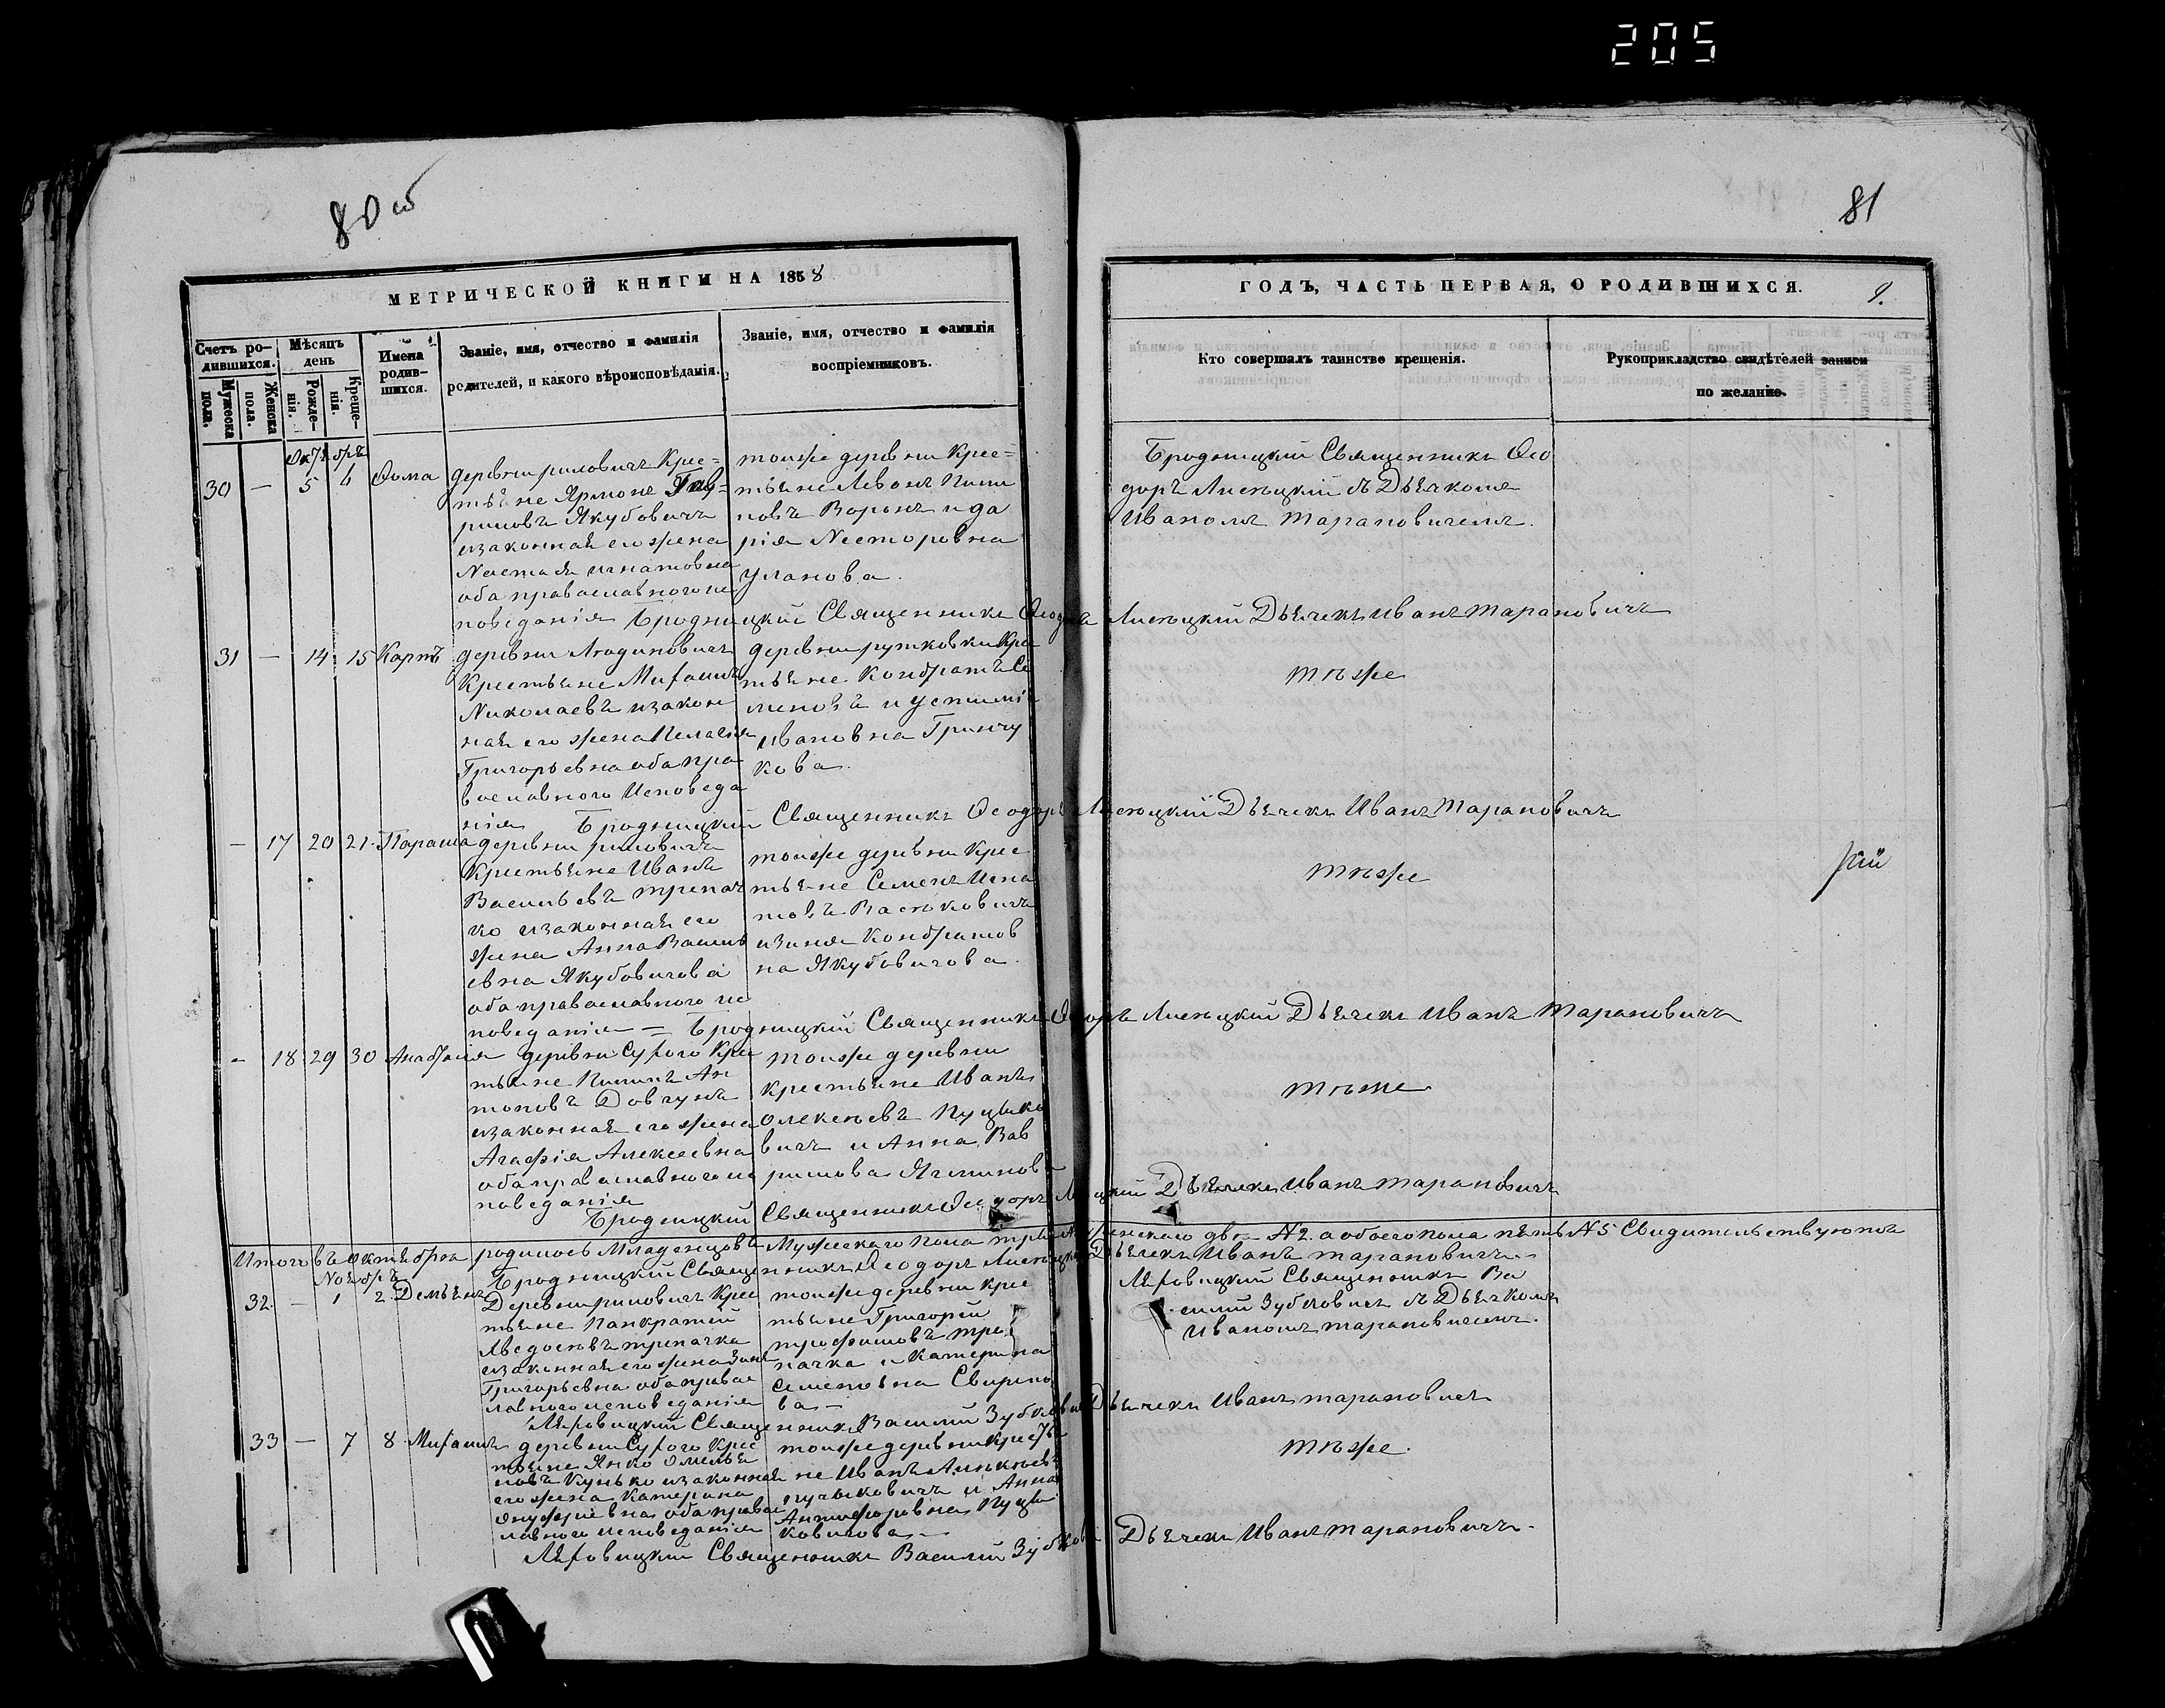 205
80 об
81
МЕТРИЧЕСКОЙ КНИГИ НА 1858
ГОДЪ, ЧАСТЬ ПЕРВАЯ, О РОДИВШИХСЯ.
9.
Счетъ ро-
дившихся.
Мужеска
пола.
Женска
пола.
Мѣсяцъ
день
Рожде-
нія.
Креще-
нія.
Имена
родив-
шихся.
Званіе, имя, отчество и фамилія
родителей, и какого вѣроисповѣданія.
Званіе, имя, отчество и фамилія
воспріемниковъ.
Кто совершалъ таинство крещенія.
Рукоприкладство свидѣтелей записи
по желанію.
Октябрь
30 — 5 6 Ѳома
деревни риловичъ Крес=
тьяне Ярмола Гав=
риловъ Якубовичъ
изаконная его жена
Настая игнатовна
оба православного ис
поведанія
тойже деревни Крес=
тьяне Левонъ Пили
повъ Воронъ ида
рія Несторовна
Уланова.
Бродницкий Священникъ Ѳео
доръ Лисецкий съ Дьячкомъ
Иваномъ тарановичемъ.
Бродницкий Священникъ Ѳеодоръ Лисецкий Дьячекъ Иванъ тарановичъ
31 — 14 15 Карпъ
деревни Людиновичъ
Крестьяне Михаилъ
Николаевъ изакон
ная его жена Пелагия
Григорьевна оба пра
вославного Исповеда
нія
деревни рутковки Кре
тьяне Кондратъ Се
меновъ и устимія
Ивановна Гринчу
кова.
тѣже
Бродницкий Священникъ Ѳеодоръ Лисецкий Дьячекъ Иванъ Тарановичъ
— 17 20 21 Параша
деревни риловичъ
Крестьяне Иванъ
Васильевъ трепач
ко изаконная его
жена Анна Василь
евна Якубовичова
оба православного ис
поведанія =
тойже деревни Крес
тьяне Семенъ Игна
товъ Васьковичъ
изиня Кондратов
на Якубовичова.
тѣже
Бродницкий Священникъ Ѳеодоръ Лисецкий Дьячекъ Иванъ Тарановичъ
- 18 29 30
деревни Сухого Крес
тьяне Пилипъ Ан
тоновъ Довгунъ
изаконная его жена
Агафія Алексеевна
оба православного ис
поведанія
тойже деревни
крестьяне Иванъ
Олексеевъ Пуцько
вичъ и Анна Вав
рилова
тѣже
Бродницкий Священникъ Ѳеодоръ Лисецкий Дьячекъ Иванъ тарановичъ
Итого въ октябрѣ родилось Младенцовъ Мужескаго Пола три женского две №2. а обоего пола пять №5 Свидительствуютъ
Бродницкий Священникъ Ѳеодоръ Лисецкий Дьячекъ Иванъ тарановичъ.
Ноябрь
32 — 1 2 Демьянъ
Деревни риловичъ Крес
тьяне Панкратий
Яведосовъ трепачка
изаконная его жена Зин
Григорьевна оба правос
лавного исповеданія
тойже деревни крес
тьяне Григорей
трофимовъ тре
пачка и Катерина
Семеновна Свирепо
ва —
Ляховицкий Священникъ Ва
силий Зубковичъ съ Дьячкомъ
Иваномъ тарановичемъ.
Ляховицкий Священникъ Василий Зубкович Дьячекъ Иванъ тарановичъ
33 — 7 8 Михаилъ
деревни Сухого Крес
тьяне Янко Омелья
новъ Кунько изаконная
его жена Катерина
Онуфриевна оба правос
лавного исповеданія
тойже деревни Кресть
не Иванъ
Пучьковичъ и Анна
Антифоровна Пуць
ковичова —
тѣже.
Ляховицкий Священникъ Василий Зубкович Дьячекъ Иванъ тарановичъ.